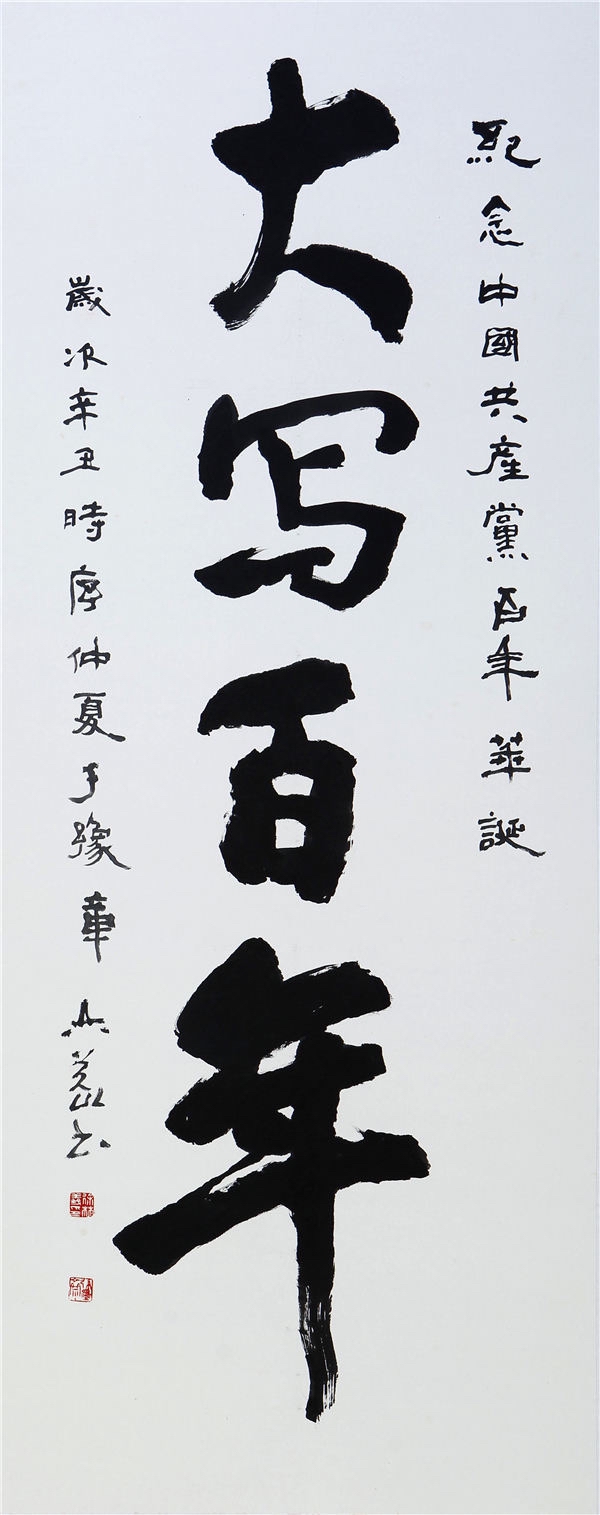 紀念中國共產黨百年華誕
大写百年
歲次辛丑時序仲夏于豫章